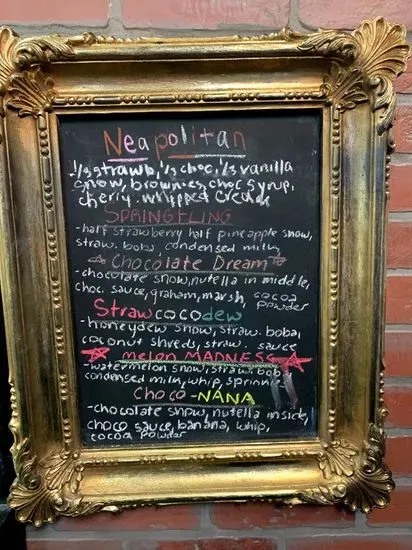 Neapolitan
1/3 strawb, 1/3 choc, 1/3 vanilla
snow, brownies, choc syrup,
cherry, whipped cream
SPRING FLING
-half strawberry half pineapple snow,
straw. boba, condensed milk
Chocolate Dream
-chocolate snow, nutella in middle,
choc. sauce, graham, marsh, cocoa
powder
Strawcocodew
-honeydew snow, straw. boba,
coconut shreds, straw. sauce
melon MADNESS
-watermelon snow, straw. bob
condensed milk, whip, sprinkle
Choco-NANA
-chocolate snow, nutella inside,
choco sauce, banana, whip,
cocoa powder